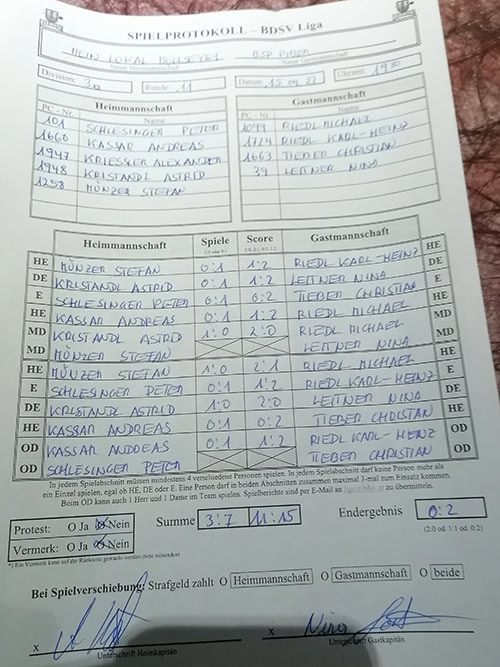 SPIELPROTOKOLL – BDSV Liga
MEIN LOKAL BULLSEYE 1 BSP PIBER
Name Heimmannschaft Name Gastmannschaft
Division: 3a Runde: 11 Datum: 15.04.23 Uhrzeit: 19:00
Heimmannschaft Gastmannschaft
PC - Nr. Name PC - Nr. Name
101 SCHLESINGER PETER 1099 RIEDL MICHAEL
1660 KASSAR ANDREAS 1724 RIEDL KARL-HEINZ
1947 KRIESSLER ALEXANDER 1663 TIEBER CHRISTIAN
1948 KRISTANDL ASTRID 39 LEITNER NINA
1258 MÜNZER STEFAN
Heimmannschaft Spiele Score Gastmannschaft
HE MÜNZER STEFAN 0:1 1:2 RIEDL KARL-HEINZ HE
DE KRISTANDL ASTRID 0:1 1:2 LEITNER NINA DE
E SCHLESINGER PETER 0:1 0:2 TIEBER CHRISTIAN E
HE KASSAR ANDREAS 0:1 1:2 RIEDL MICHAEL HE
MD KRISTANDL ASTRID 1:0 2:0 RIEDL MICHAEL MD
MD MÜNZER STEFAN LEITNER NINA MD
HE MÜNZER STEFAN 1:0 2:1 RIEDL MICHAEL HE
E SCHLESINGER PETER 0:1 1:2 RIEDL KARL-HEINZ E
DE KRISTANDL ASTRID 1:0 2:0 LEITNER NINA DE
HE KASSAR ANDREAS 0:1 0:2 TIEBER CHRISTIAN HE
OD KASSAR ANDREAS 0:1 1:2 RIEDL KARL-HEINZ OD
OD SCHLESINGER PETER TIEBER CHRISTIAN OD
In jedem Spielabschnitt müssen mindestens 4 verschiedene Personen spielen. In jedem Spielabschnitt darf keine Person mehr als
ein Einzel spielen, egal ob HE, DE oder E. Eine Person darf in beiden Abschnitten zusammen maximal 3-mal zum Einsatz kommen.
Beim OD kann auch 1 Herr und 1 Dame im Team spielen. Spielberichte sind per E-Mail an zu übermitteln.
Protest: O Ja O Nein Summe 3:7 11:15 Endergebnis 0:2
Vermerk: O Ja O Nein (2:0 od. 1:1 od. 0:2)
*) Ein Vermerk kann auf der Rückseite gemacht werden (bitte mitsenden)
Bei Spielverschiebung: Strafgeld zahlt O Heimmannschaft O Gastmannschaft O beide
x x Nina
Unterschrift Heimkapitän Unterschrift Gastkapitän